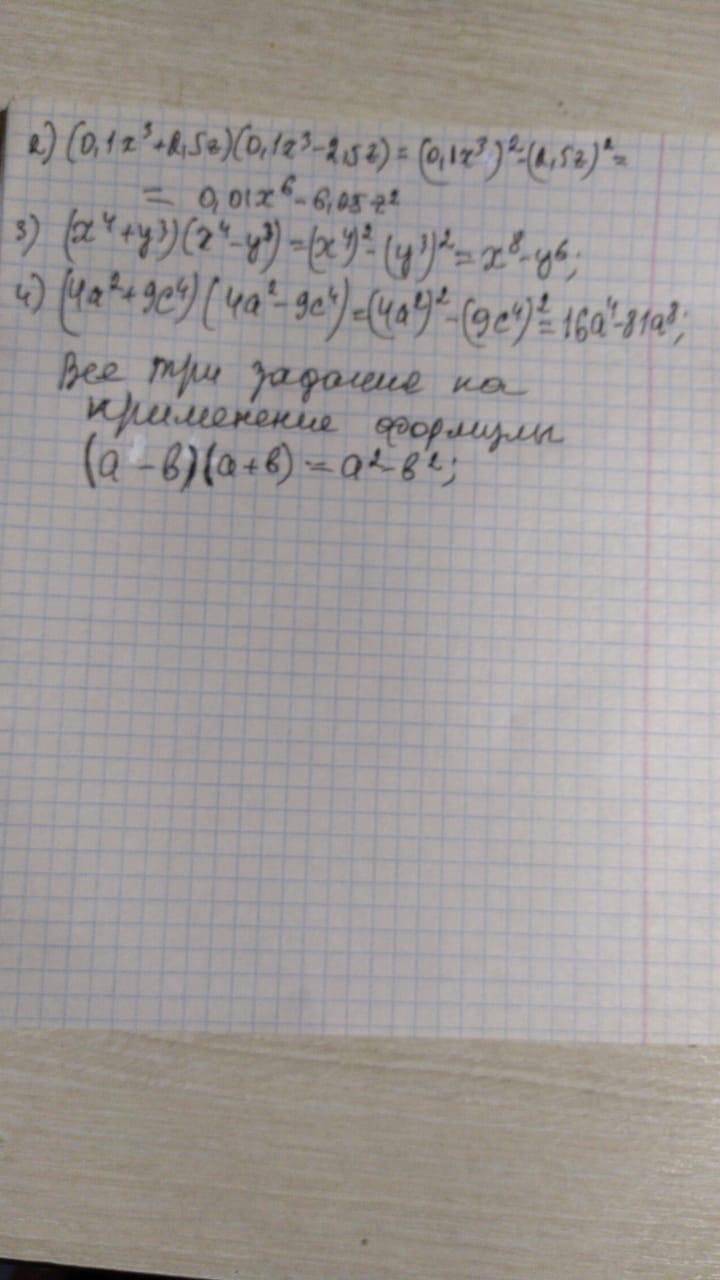 2) (0,1x³+2,5z)(0,1x³-2,5z) = (0,1x³)²-(2,5z)² =
= 0,01x⁶-6,25z²
3) (x⁴+y³)(x⁴-y³)=(x⁴)²-(y³)²=x⁸-y⁶;
4) (4a²+9c⁴)(4a²-9c⁴)=(4a²)²-(9c⁴)²=16a⁴-81a⁸;
Все три задание на
применение формулы
(a-b)(a+b)=a²-b²;